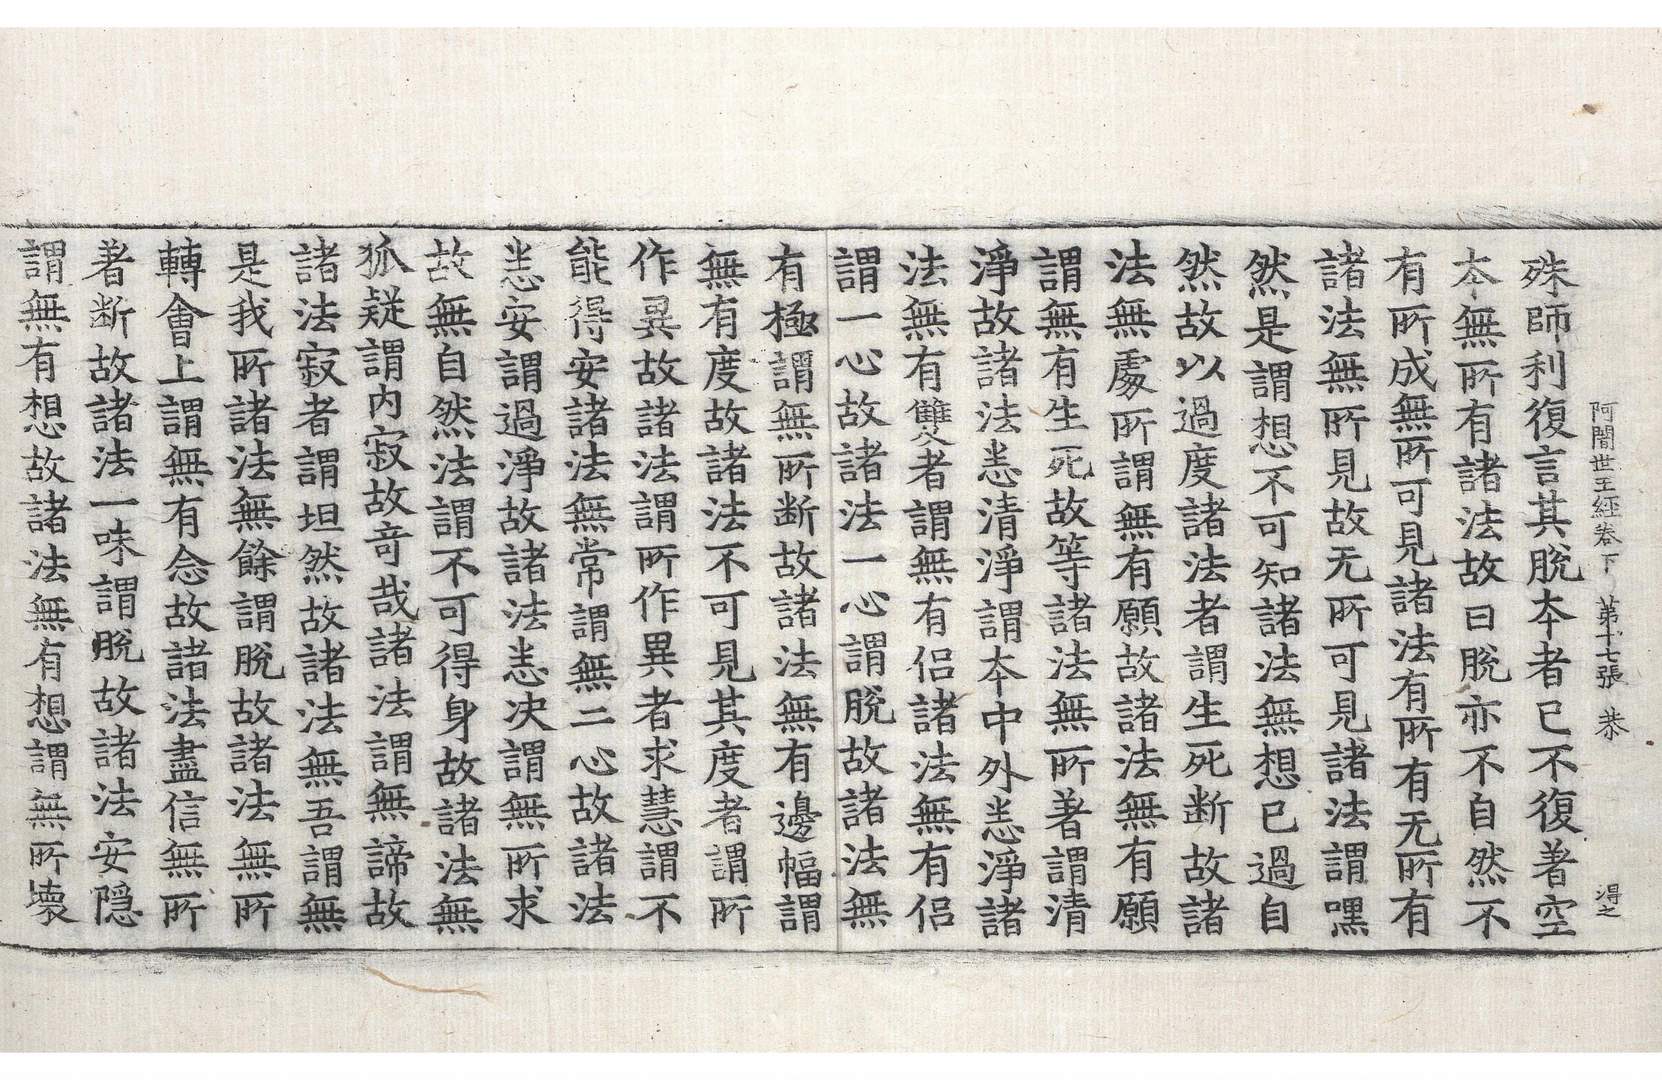 阿闍世王經卷下 第十七張 恭 得之
殊師利復言其脫本者已不復著空
本無所有諸法故曰脫亦不自然不
有所成無所可見諸法有所有无所有
諸法無所見故无所可見諸法謂嘿
然是謂想不可知諸法無想已過自
然故以過度諸法者謂生死断故諸
法無處所謂無有願故諸法無有願
謂無有生死故等諸法無所著謂清
淨故諸法恙清淨謂本中外恙淨諸
法無有雙者謂無有侶諸法無有侶
謂一心故諸法一心謂脫故諸法無
有極謂無所断故諸法無有邊幅謂
無有度故諸法不可見其度者謂所
作異故諸法謂所作異者求慧謂不
能得安諸法無常謂無二心故諸法
恙安謂過淨故諸法恙决謂無所求
故無自然法謂不可得身故諸法無
狐疑謂内寂故竒哉諸法謂無諦故
諸法寂者謂坦然故諸法無吾謂無
是我所諸法無餘謂脫故諸法無所
轉會上謂無有念故諸法盡信無所
著断故諸法一味謂脫故諸法安隱
謂無有想故諸法無有想謂無所壞